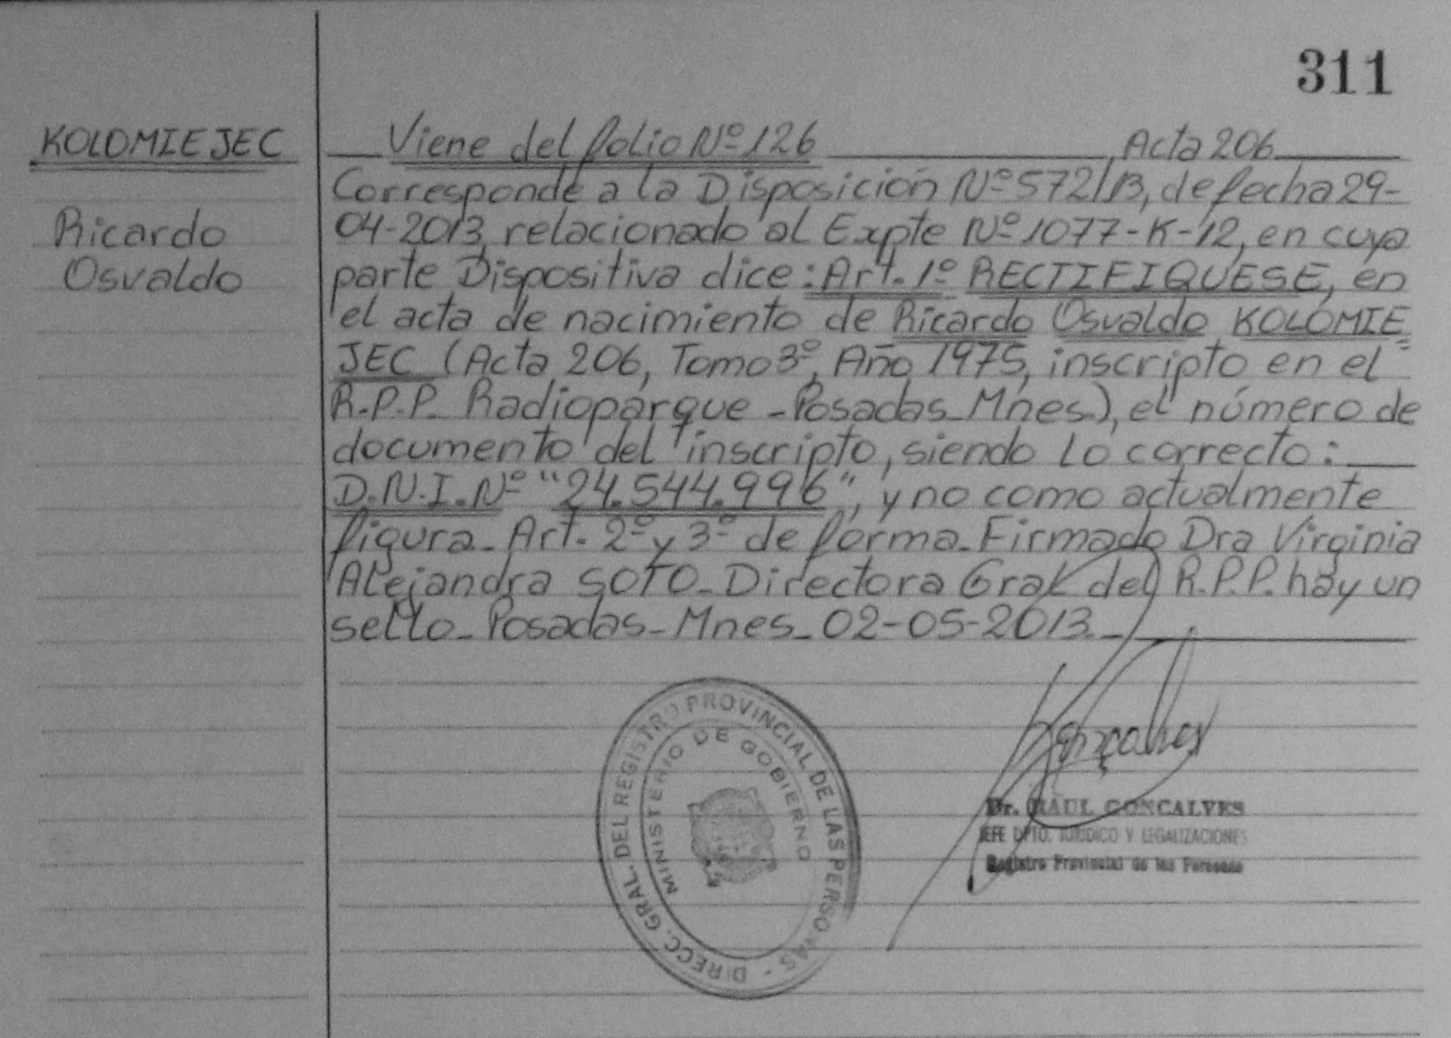 311
KOLOMIEJEC
Ricardo
Osvaldo
Viene del folio Nº 126, Acta 206
Corresponde a la Disposición Nº 572/13, de fecha 29-
04-2013, relacionado al Expte Nº 1077-K-12, en cuya
parte Dispositiva dice: Art. 1º RECTIFIQUESE, en
el acta de nacimiento de Ricardo Osvaldo KOLOMIE
JEC (Acta 206, Tomo 3º, Año 1975, inscripto en el
R.P.P. Radioparque - Posadas - Mnes.), el número de
documento del inscripto, siendo lo correcto:
D.N.I. Nº "24.544.996", y no como actualmente
figura - Art. 2º y 3º de forma - Firmado Dra Virginia
Alejandra SOTO - Directora Gral del R.P.P. hay un
sello - Posadas - Mnes - 02-05-2013.-
DIRECC. GRAL. DEL REGISTRO PROVINCIAL DE LAS PERSONAS -
MINISTERIO DE GOBIERNO
Gonçalves
Dr. RAUL GONCALVES
JEFE DPTO. JURIDICO Y LEGALIZACIONES
Registro Provincial de las Personas